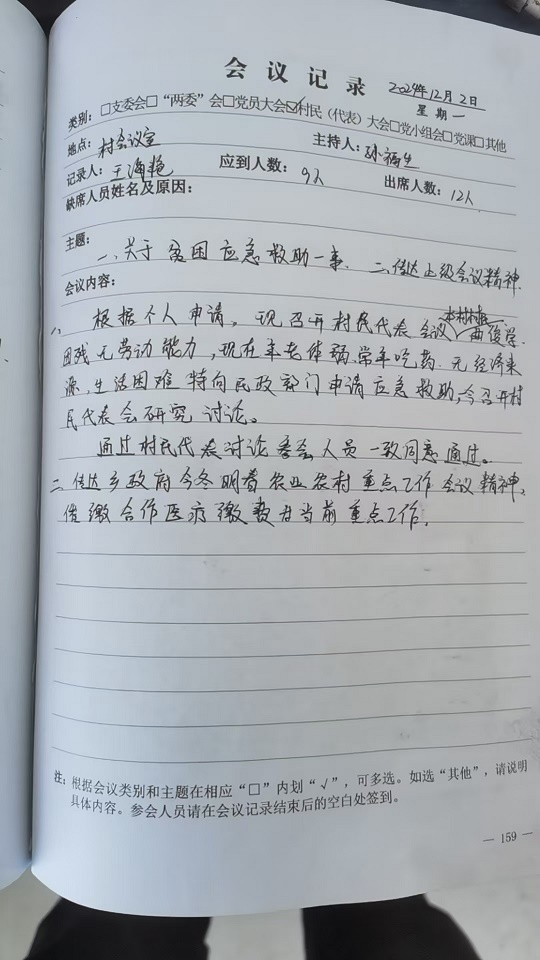 会议记录
2024年12月2日
星期一
类别：□支委会□“两委”会□党员大会☑村民（代表）大会□党小组会□党课□其他
地点：村会议室 主持人：孙福生
记录人：王海艳 应到人数：9人 出席人数：12人
缺席人员姓名及原因：
主题：一、关于贫困应急救助一事. 二、传达上级会议精神.
会议内容：
一、根据个人申请，现召开村民代表会议，本村村民 俊学
因残无劳动能力，现在年老体弱常年吃药.无经济来
源.生活困难 特向民政部门申请应急救助,今召开村
民代表会研究讨论。
通过村民代表讨论 参会人员一致同意通过。
二.传达乡政府今冬明春农业农村重点工作会议精神，
催缴合作医疗缴费为当前重点工作.
注：根据会议类别和主题在相应“□”内划“√”，可多选。如选“其他”，请说明
具体内容。参会人员请在会议记录结束后的空白处签到。
— 159 —